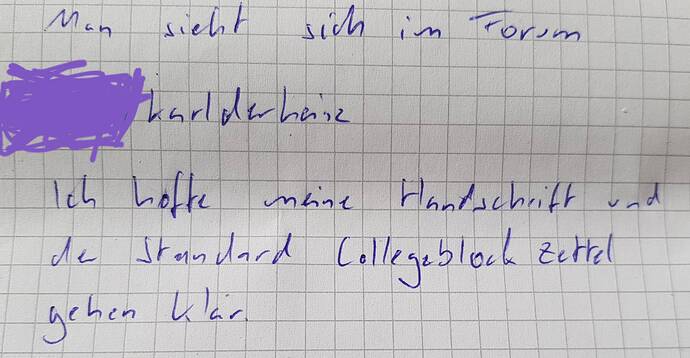 Man sieht sich im Forum
karlderheinz
Ich hoffe meine Handschrift und
der Standard Collegeblock Zettel
gehen klar.